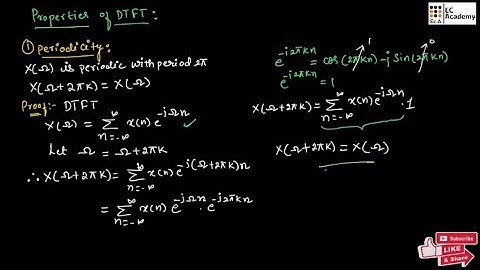 Properties of DTFT:
① Periodicity:
X(Ω) is periodic with period 2π
X(Ω+2πk) = X(Ω)
Proof:- DTFT
X(Ω) = ∞ Σ n=-∞ x(n) e^-jΩn ✓
Let Ω = Ω+2πk
∴ X(Ω+2πk) = ∞ Σ n=-∞ x(n) e^-j(Ω+2πk)n
= ∞ Σ n=-∞ x(n) e^-jΩn . e^-j2πkn
e^-j2πkn = cos(2πkn) - j sin(2πkn)
1
0
e^-j2πkn = 1
X(Ω+2πk) = ∞ Σ n=-∞ x(n) e^-jΩn . 1
X(Ω+2πk) = X(Ω)
EC
Academy
ECA
Subscribe
LIKE
& Share